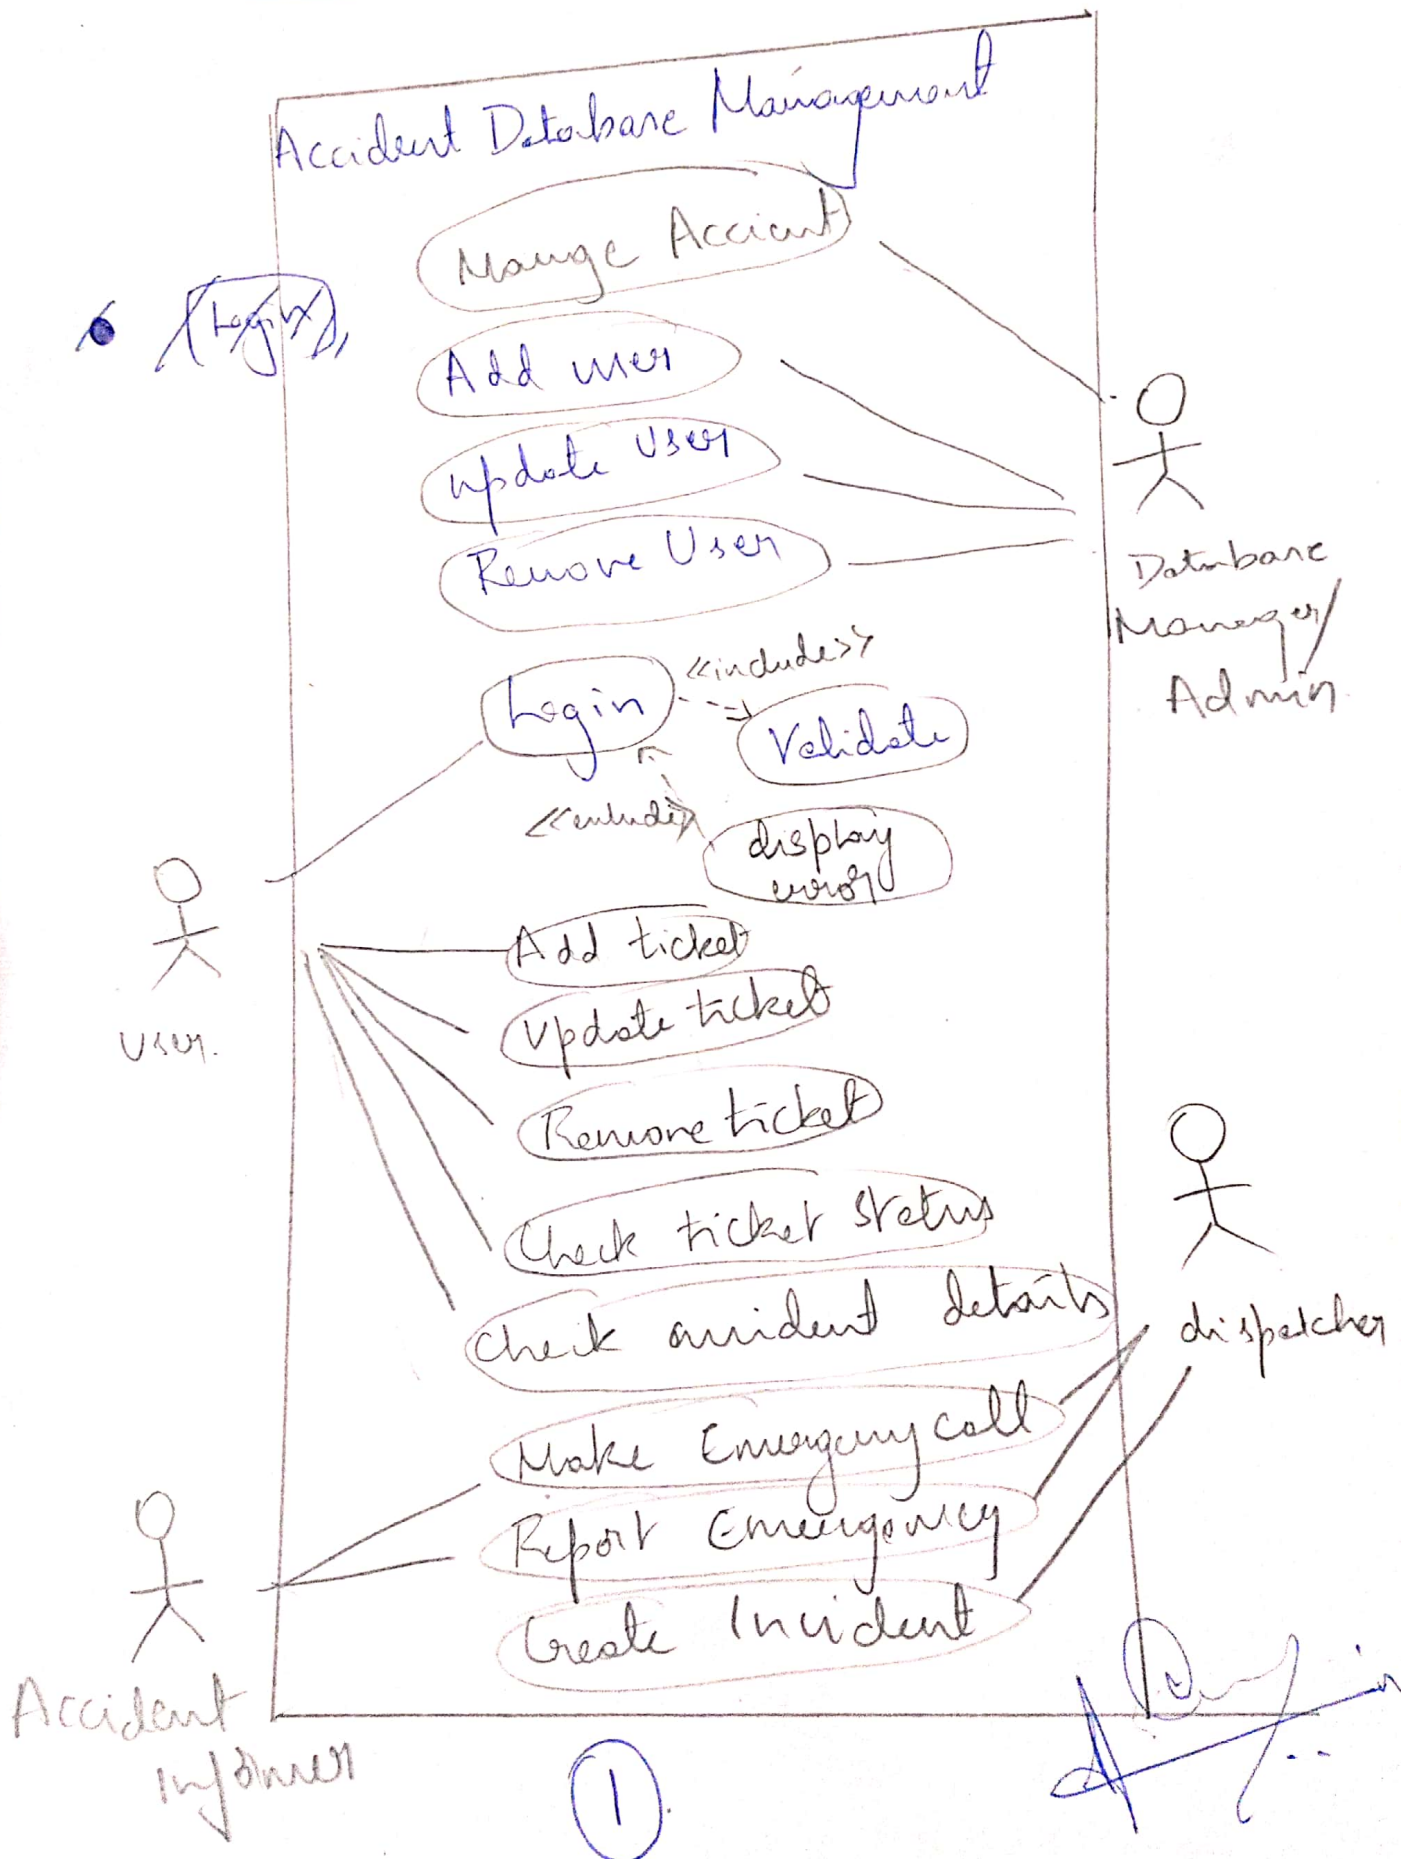 Accident Database Management
Mange Accient
Login
Add user
update User
Remove User
Database
Manager/
Admin
<<include>>
Login
Validate
display
error
Add ticket
User.
Update ticket
Remove ticket
Check ticket Status
Check accident details
dispatcher
Make Emergency call
Report Emergency
Create Incident
Accident
Informer
1